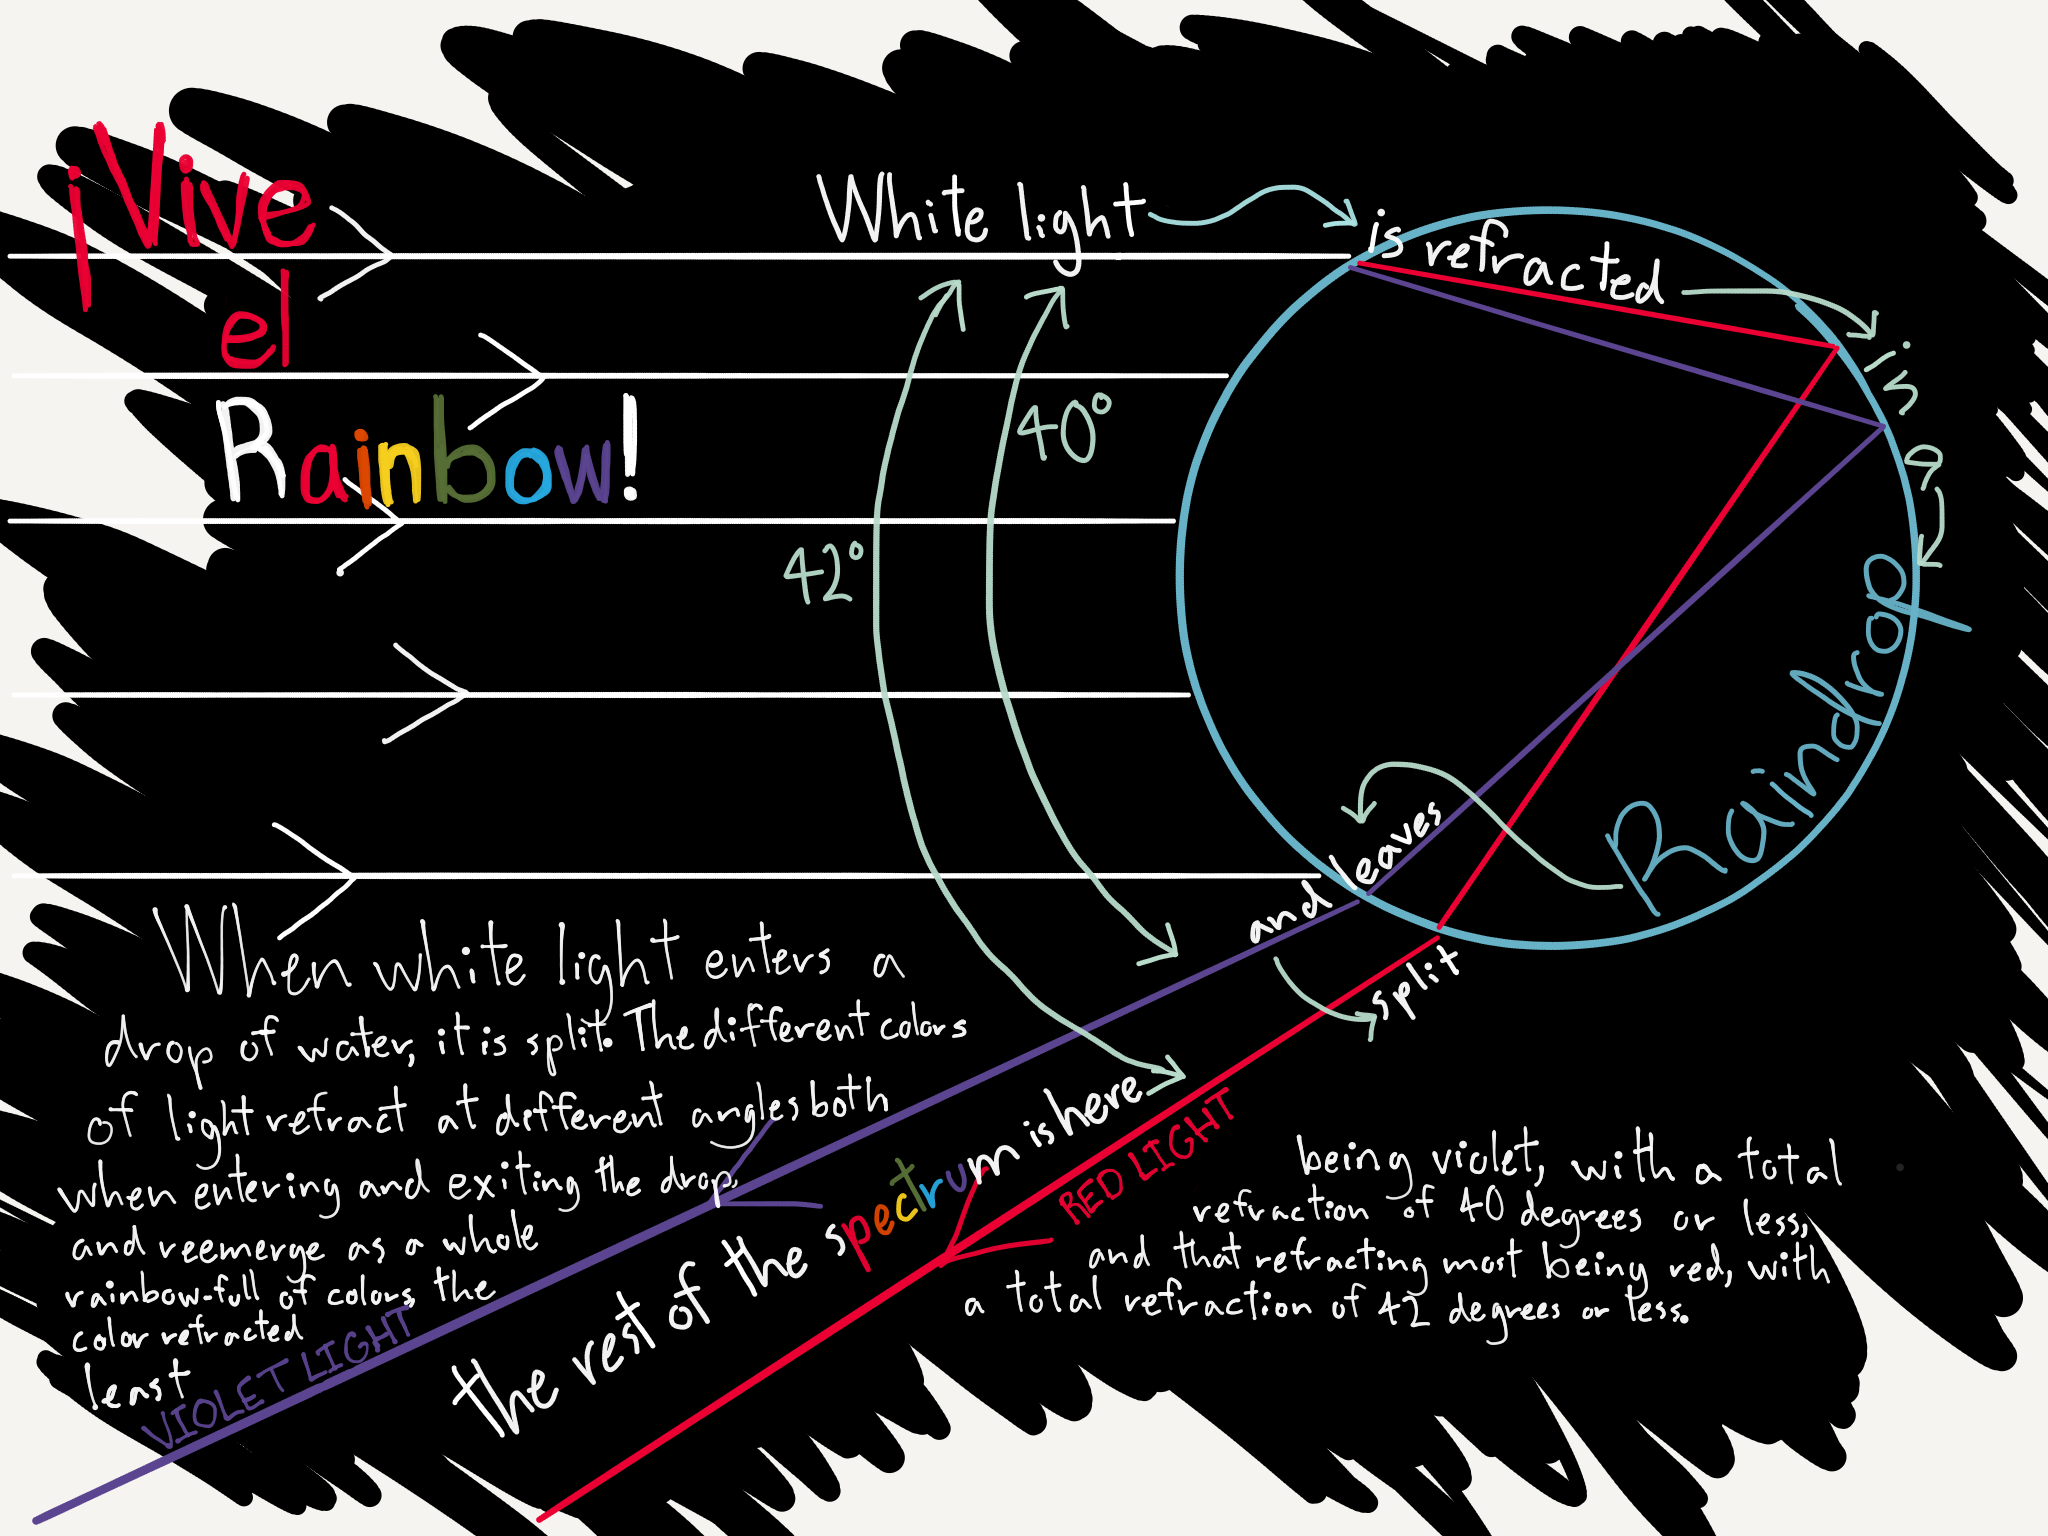 ¡Vive
el
Rainbow!
White light
is refracted
in
a
Raindrop
and leaves
split
40°
42°
When white light enters a
drop of water, it is split. The different colors
of light refract at different angles both
when entering and exiting the drop,
and reemerge as a whole
rainbow-full of colors, the
color refracted
least
being violet, with a total
refraction of 40 degrees or less,
and that refracting most being red, with
a total refraction of 42 degrees or less.
VIOLET LIGHT
the rest of the spectrum is here
RED LIGHT